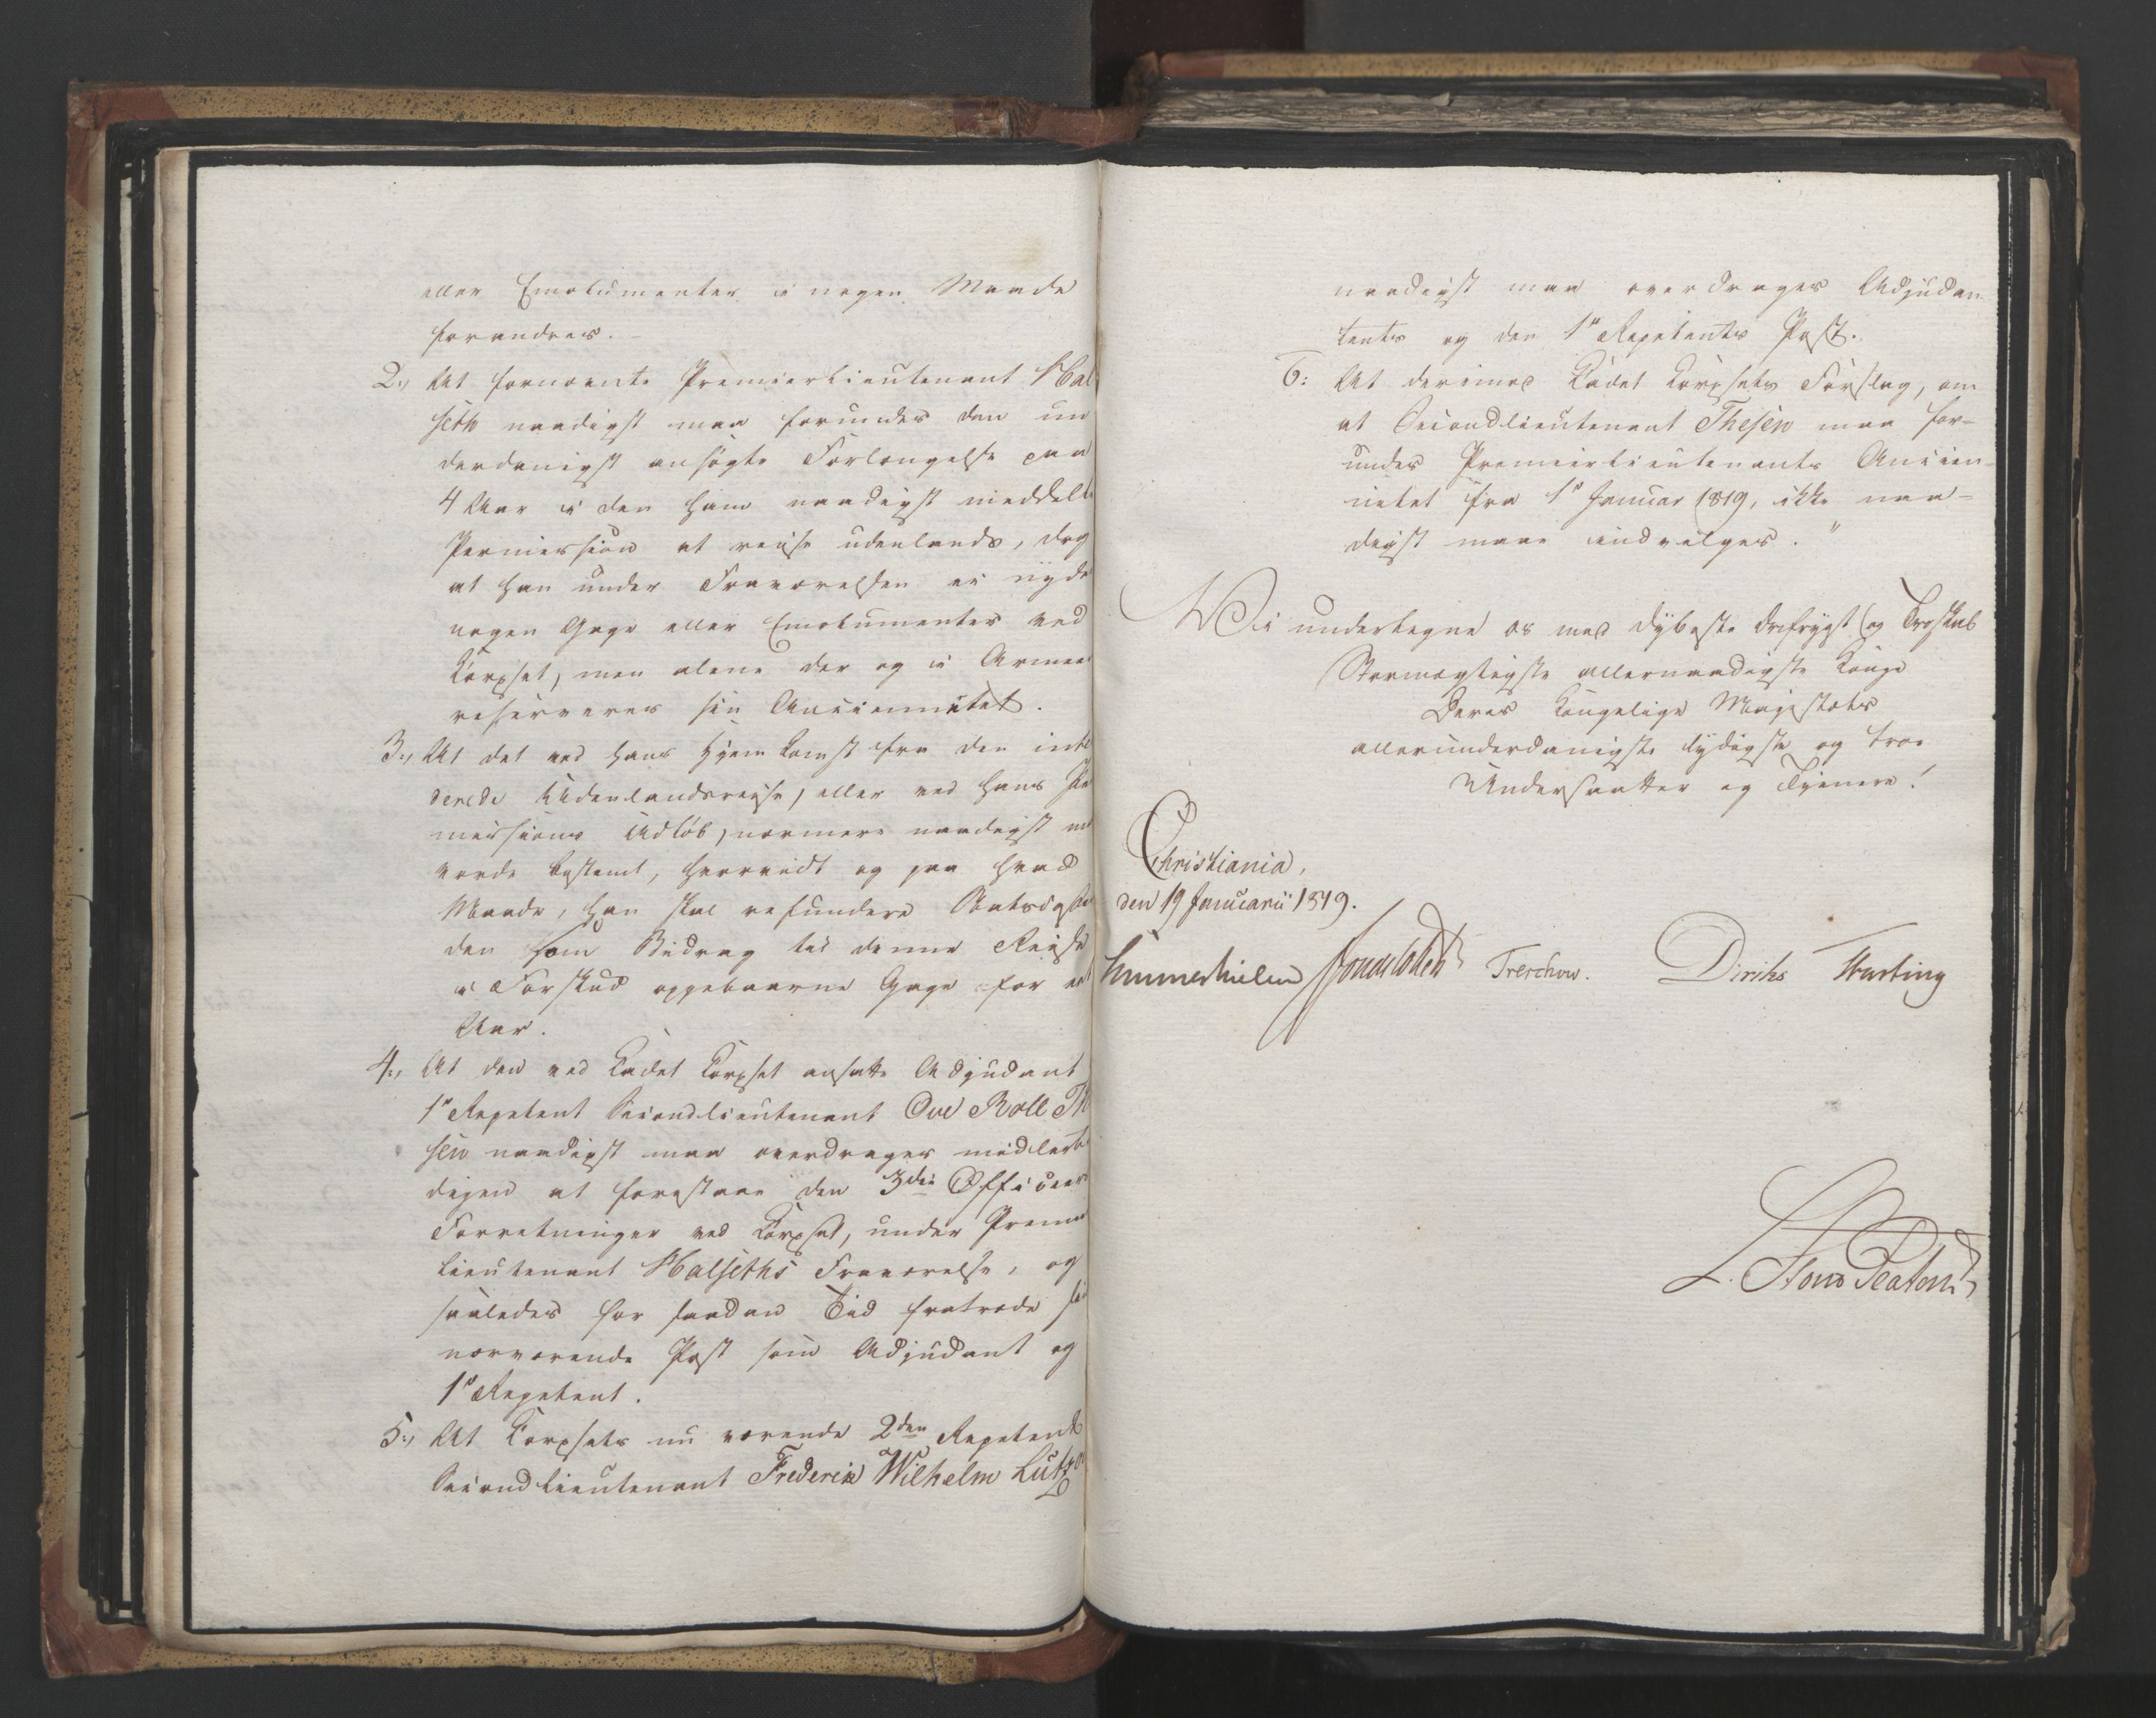 eller Emolumenter i nogen Maade
forandres.
2., At fornævnte Premierlieutenant Hal
seth naadigst maa forundes den un
derdanigst ansøgte Forlængelse paa
4 Aar i den ham naadigst meddelte
Permission at reise udenlands, dog
at han under Fraværelsen ei nyde
nogen Gage eller Emolumenter ved
Corpset, men alene der og i Armeen
reserveres sin Anciennitet.
3., At det ved hans Hjemkomst fra den inten
derede Udenlandsreise, eller ved hans Per
missions Udløb, nærmere naadigst maa
vorde bestemt, hvorvidt og paa hvad
Maade, han skal refundere Statscassen
den som Bidrag til denne Reise
i Forskud oppebaarne Gage for et
Aar.
4., At den ved Cadet Corpset ansatte Adjudant
1ste Repetent Secondlieutenant Ove Boll The
sen naadigst maa overdrages midlerti
digen at forestaae den 3die Officeers
Forretninger ved Corpset, under Premier
Lieutenant Halseths Fraværelse, og
saaledes for saadan Tid fratræde sin
nærværende Post som Adjudant og
1ste Repetent.
5., At Corpsets nu værende 2den Repetent
Secondlieutenant Frederik Wilhelm Lütz
naadigst maa overdrages Adjudan
tents og den 1ste Repetents Post.
6: At derimod Cadet Corpsets Forslag, om
at Secondlieutenant Thesen maa for=
undes Premierlieutenants Ancien=
nitet fra 1ste Januar 1819, ikke naa=
digst maae indvilges."
Vi undertegne os med dybeste Ærefrygt og Troskab
Stormægtigste allernaadigste Konge
Deres Kongelige Majestæts
allerunderdanigste lydigste og troe
Undersaatter og Tjenere!
Christiania,
den 19 Januarii 1819.
Hummerhielm Sommerfeldt Treschow. Diriks Fasting
L. Fons Peaton